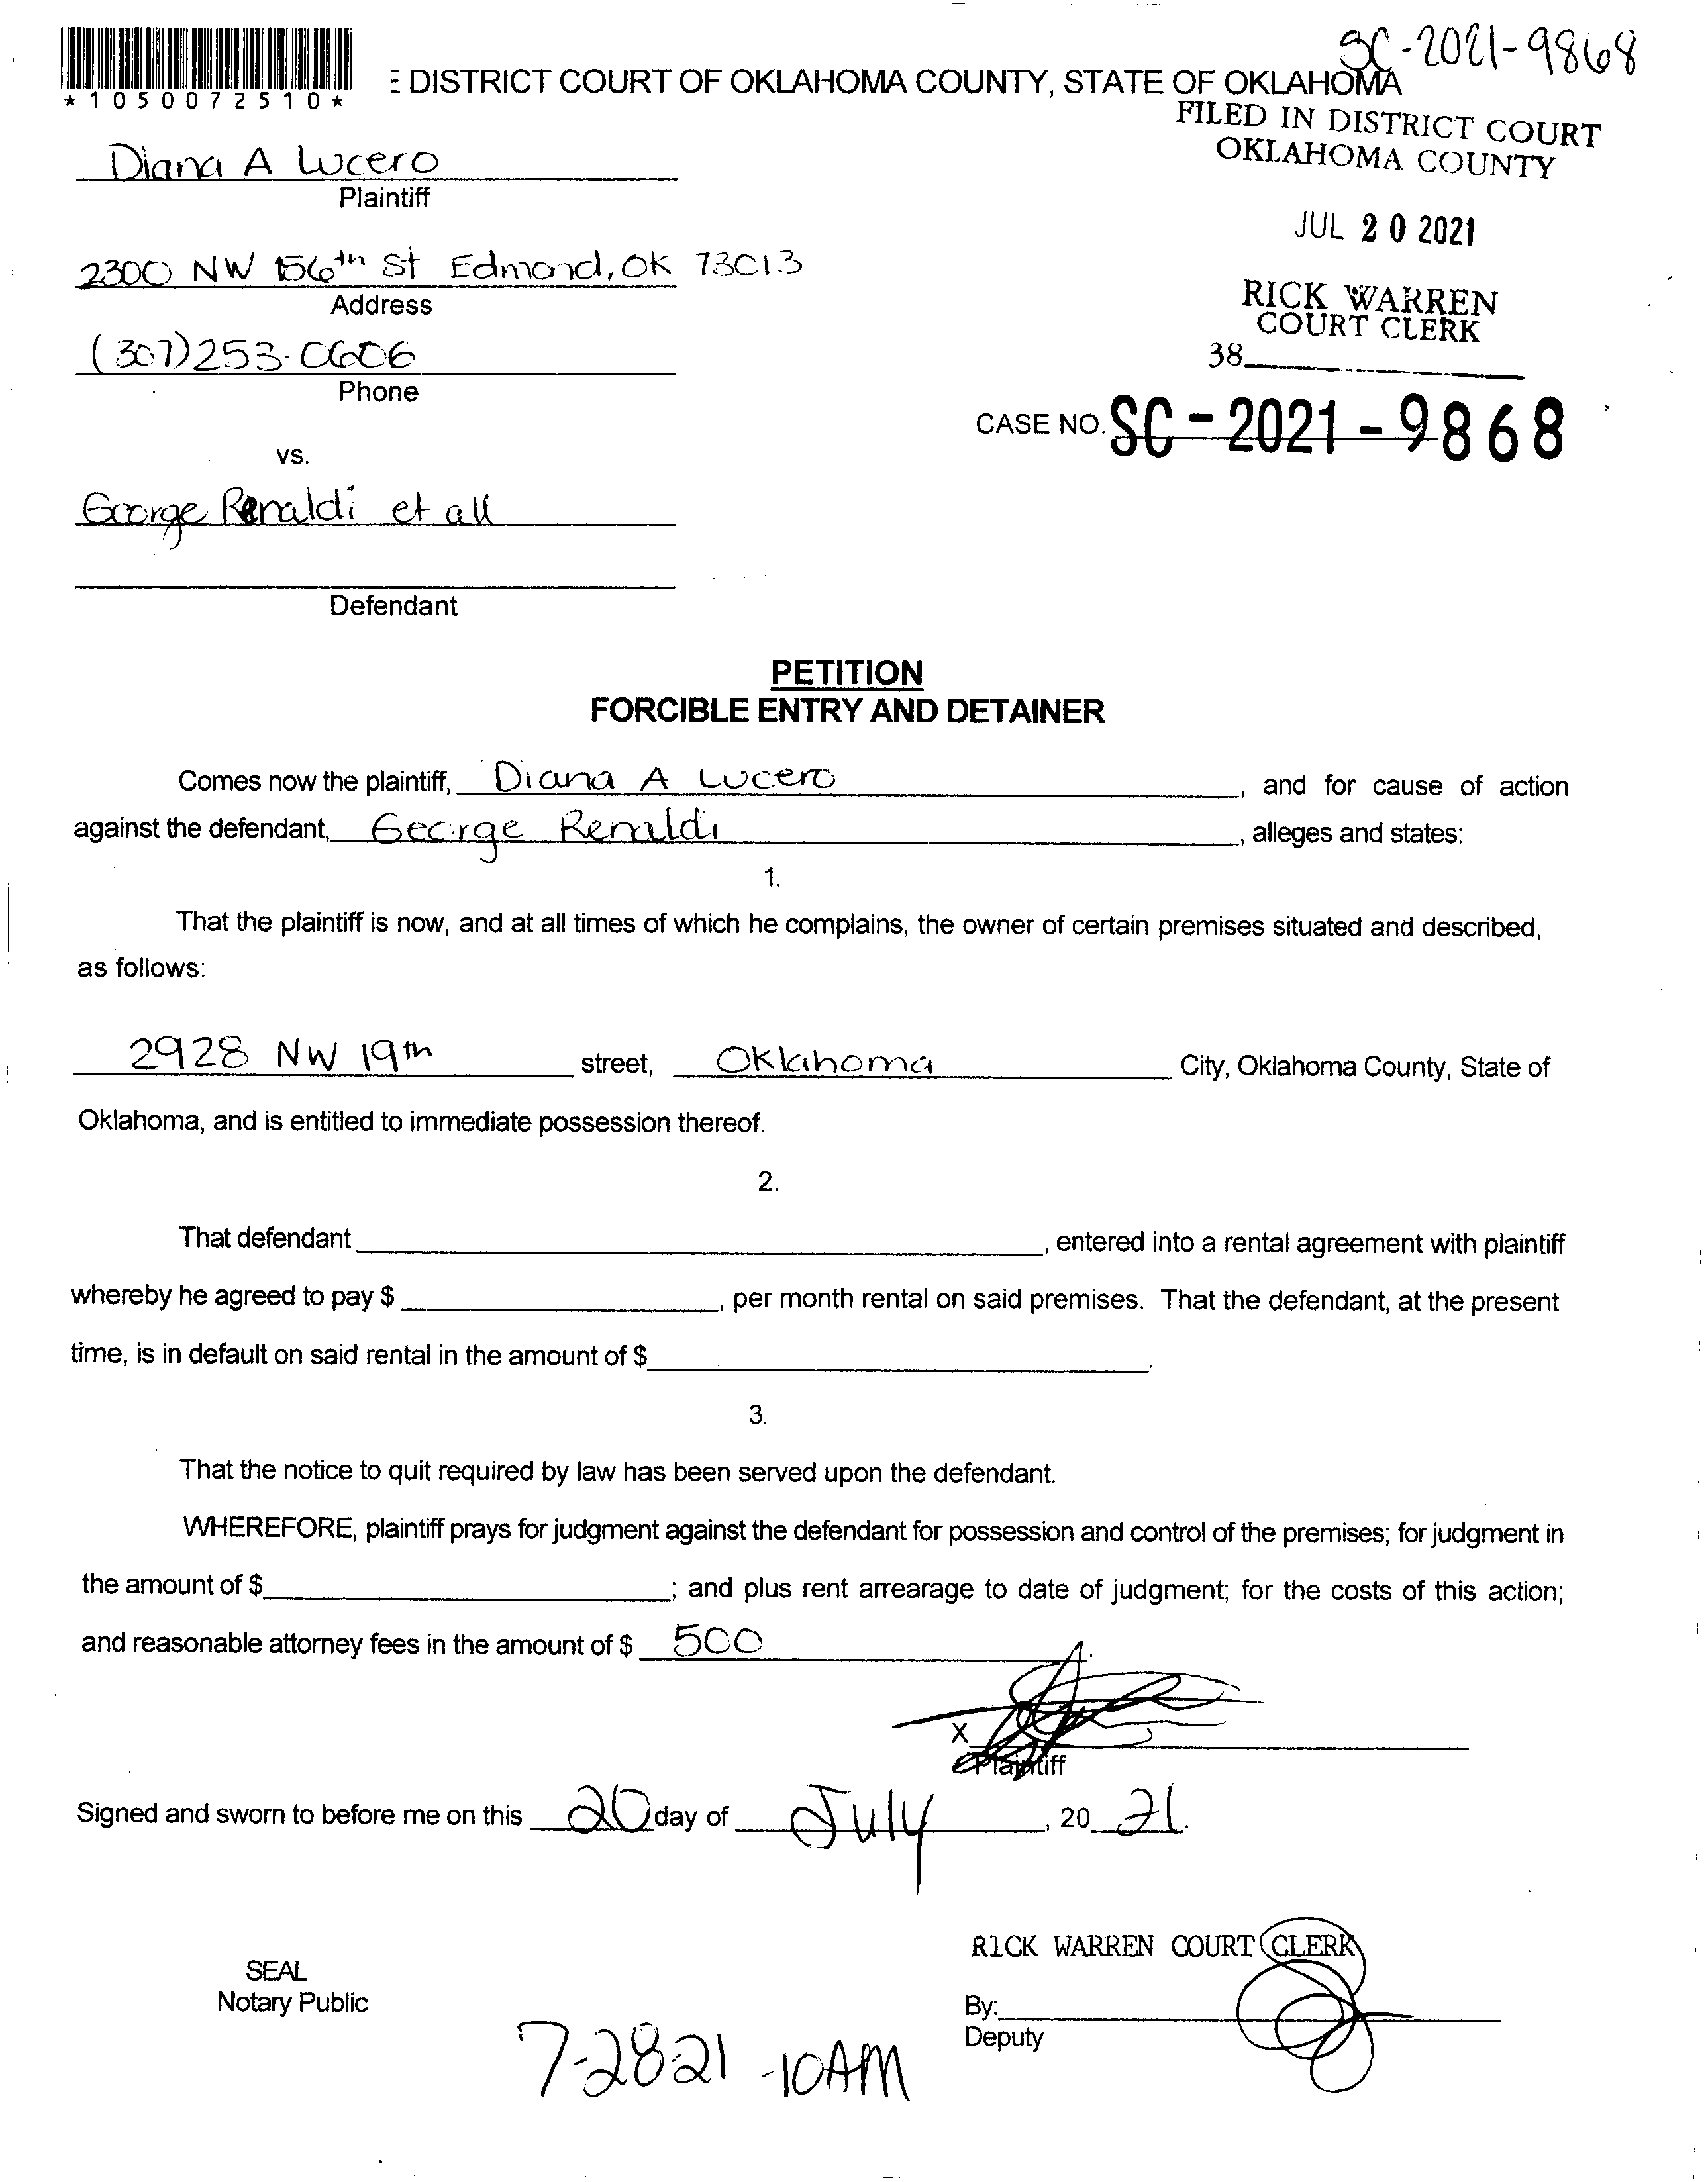 SC-2021-9868
*1050072510*
E DISTRICT COURT OF OKLAHOMA COUNTY, STATE OF OKLAHOMA
FILED IN DISTRICT COURT
OKLAHOMA COUNTY
Diana A Lucero
Plaintiff
JUL 20 2021
2300 NW 156th St Edmond, OK 73013
Address
RICK WARREN
COURT CLERK
(307)253-0606
38
Phone
CASE NO. SC-2021-9868
vs.
George Renaldi et all
Defendant
PETITION
FORCIBLE ENTRY AND DETAINER
Comes now the plaintiff, Diana A Lucero, and for cause of action
against the defendant, George Renaldi, alleges and states:
1.
That the plaintiff is now, and at all times of which he complains, the owner of certain premises situated and described,
as follows:
2928 NW 19th street, Oklahoma City, Oklahoma County, State of
Oklahoma, and is entitled to immediate possession thereof.
2.
That defendant , entered into a rental agreement with plaintiff
whereby he agreed to pay $ , per month rental on said premises. That the defendant, at the present
time, is in default on said rental in the amount of $ .
3.
That the notice to quit required by law has been served upon the defendant.
WHEREFORE, plaintiff prays for judgment against the defendant for possession and control of the premises; for judgment in
the amount of $ ; and plus rent arrearage to date of judgment; for the costs of this action;
and reasonable attorney fees in the amount of $ 500.
X
Plaintiff
Signed and sworn to before me on this 20 day of July, 20 21.
RICK WARREN COURT CLERK
SEAL
Notary Public
By:
Deputy
7-28-21 -10AM